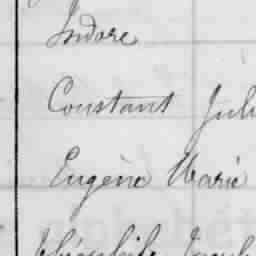 Indore
Constant Juli
Eugène Marie